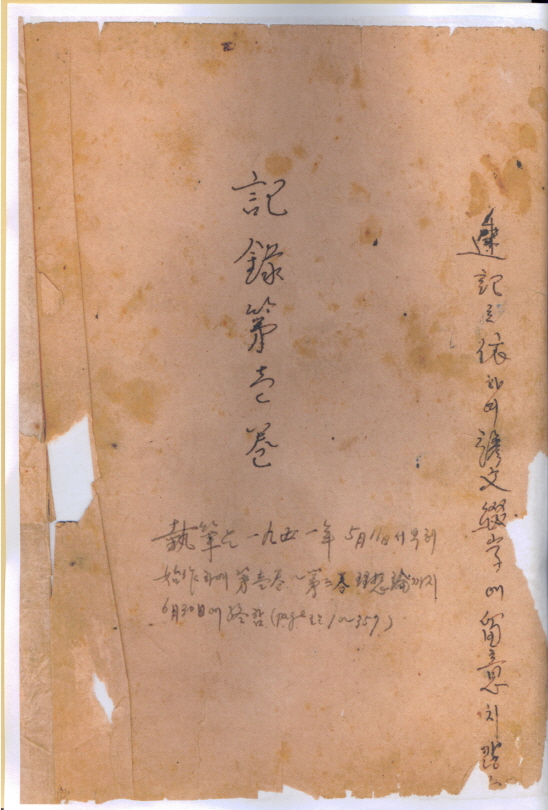 速記로 依하여 諺文綴字에 留意치 않
記錄第壱卷
執筆는 一九五一年 5月11日서부터
始作하여 第壱卷~第 卷 理想論까지
6月30日에 終함 (1~359)